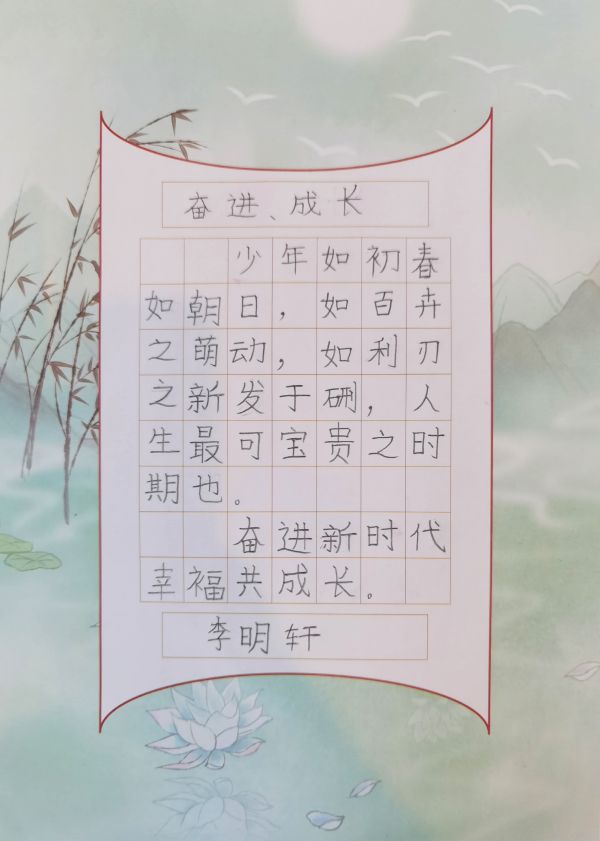 奋进、成长
少年如初春
如朝日，如百卉
之萌动，如利刃
之新发于硎，人
生最可宝贵之时
期也。
奋进新时代
幸福共成长。
李明轩